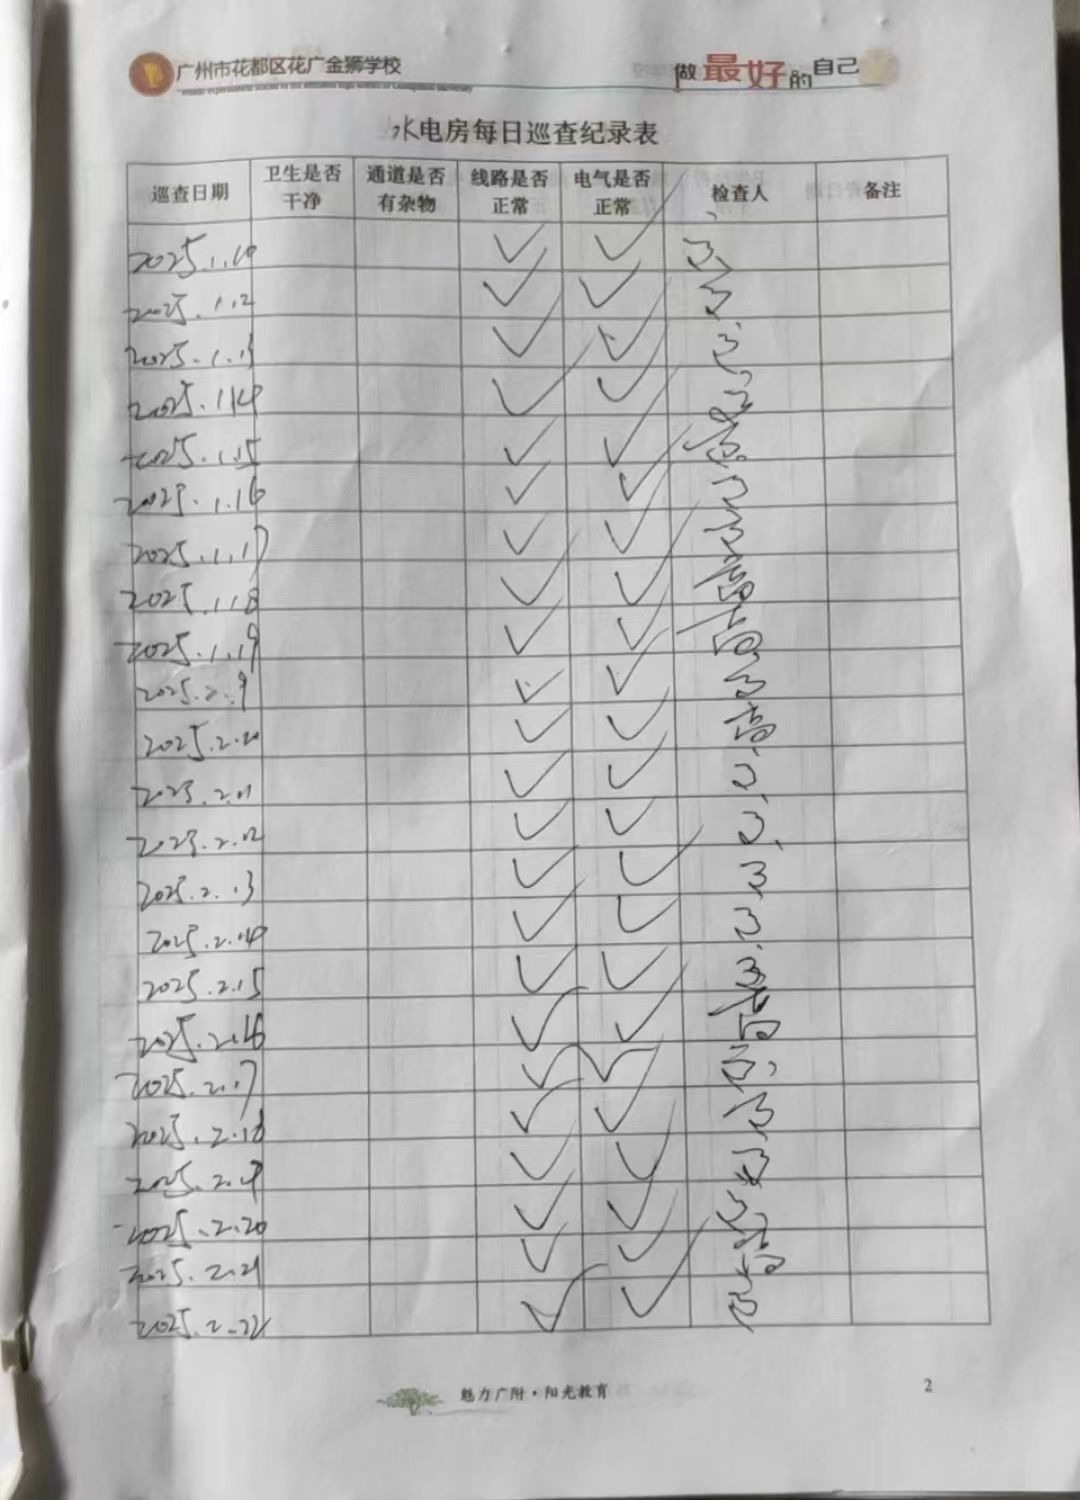 广州市花都区花广金狮学校
做最好的自己
水电房每日巡查纪录表
巡查日期 卫生是否干净 通道是否有杂物 线路是否正常 电气是否正常 检查人 备注
2025.1.10 ✓ ✓
2025.1.12 ✓ ✓
2025.1.13 ✓ ✓
2025.1.14 ✓ ✓
2025.1.15 ✓ ✓
2025.1.16 ✓ ✓
2025.1.17 ✓ ✓
2025.1.18 ✓ ✓ 高
2025.1.19 ✓ ✓ 高
2025.2.9 ✓ ✓
2025.2.20 ✓ ✓ 高
2025.2.11 ✓ ✓
2025.2.12 ✓ ✓
2025.2.13 ✓ ✓
2025.2.14 ✓ ✓
2025.2.15 ✓ ✓
2025.2.16 ✓ ✓ 高
2025.2.17 ✓ ✓
2025.2.18 ✓ ✓
2025.2.19 ✓ ✓
2025.2.20 ✓ ✓
2025.2.21 ✓ ✓
2025.2.22 ✓ ✓
魅力广附·阳光教育
2